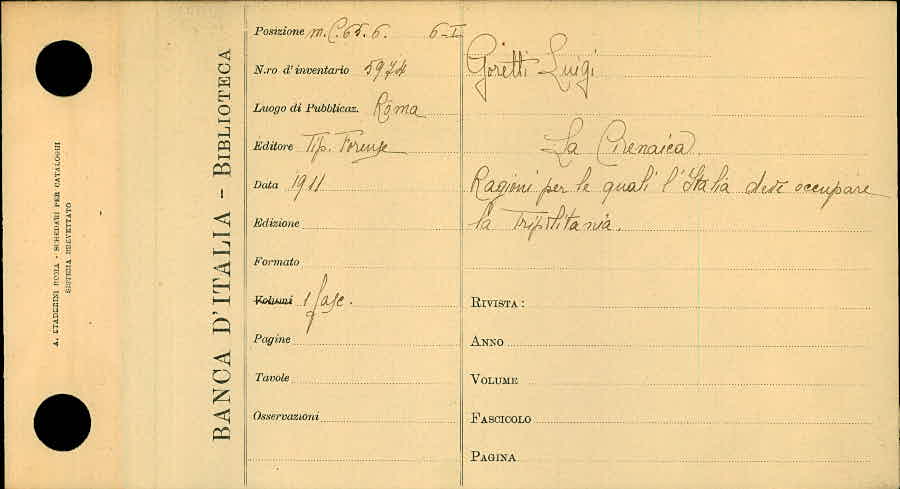 A. STADERINI ROMA - SCHEDARI PER CATALOGHI
SISTEMA BREVETTATO
BANCA D'ITALIA - BIBLIOTECA
Posizione m. C. 65. 6. 6-I
N.ro d'inventario 5974
Luogo di Pubblicaz. Roma
Editore Tip. Forense
Data 1911
Edizione
Formato
Volumi 1 fasc.
Pagine
Tavole
Osservazioni
Goretti Luigi
La Cirenaica.
Ragioni per le quali l'Italia deve occupare
la Tripolitania.
RIVISTA:
ANNO
VOLUME
FASCICOLO
PAGINA